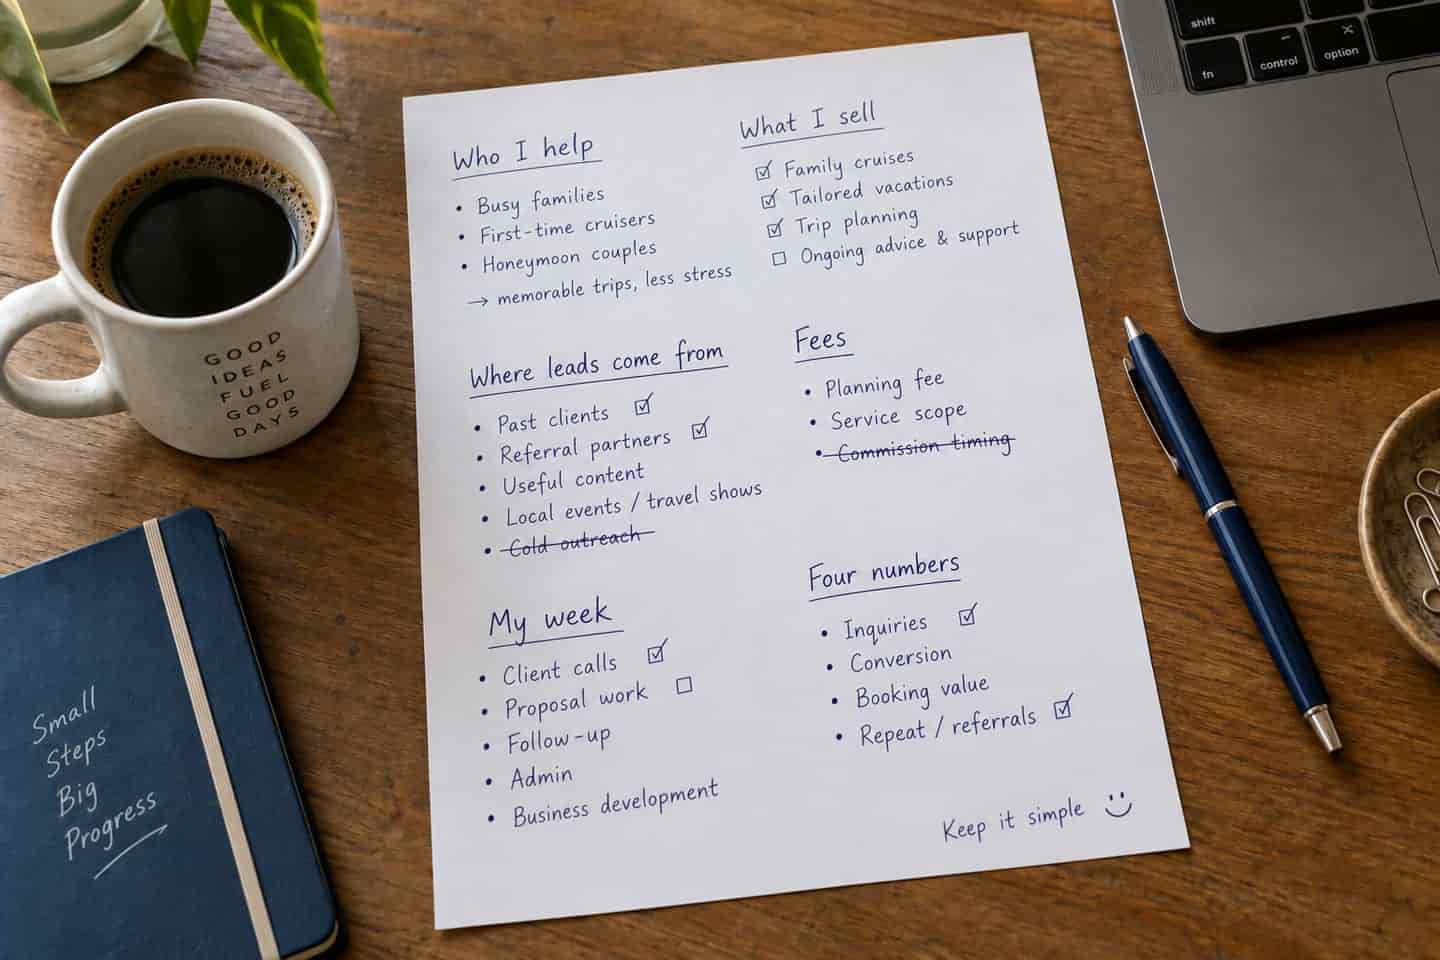 Who I help
• Busy families
• First-time cruisers
• Honeymoon couples
→ memorable trips, less stress
What I sell
☑ Family cruises
☑ Tailored vacations
☑ Trip planning
☐ Ongoing advice & support
Where leads come from
• Past clients ☑
• Referral partners ☑
• Useful content
• Local events / travel shows
• Cold outreach
Fees
• Planning fee
• Service scope
• Commission timing
My week
• Client calls ☑
• Proposal work ☐
• Follow-up
• Admin
• Business development
Four numbers
• Inquiries ☑
• Conversion
• Booking value
• Repeat / referrals ☑
Keep it simple
GOOD
IDEAS
FUEL
GOOD
DAYS
Small
Steps
Big
Progress
shift
fn
control
option